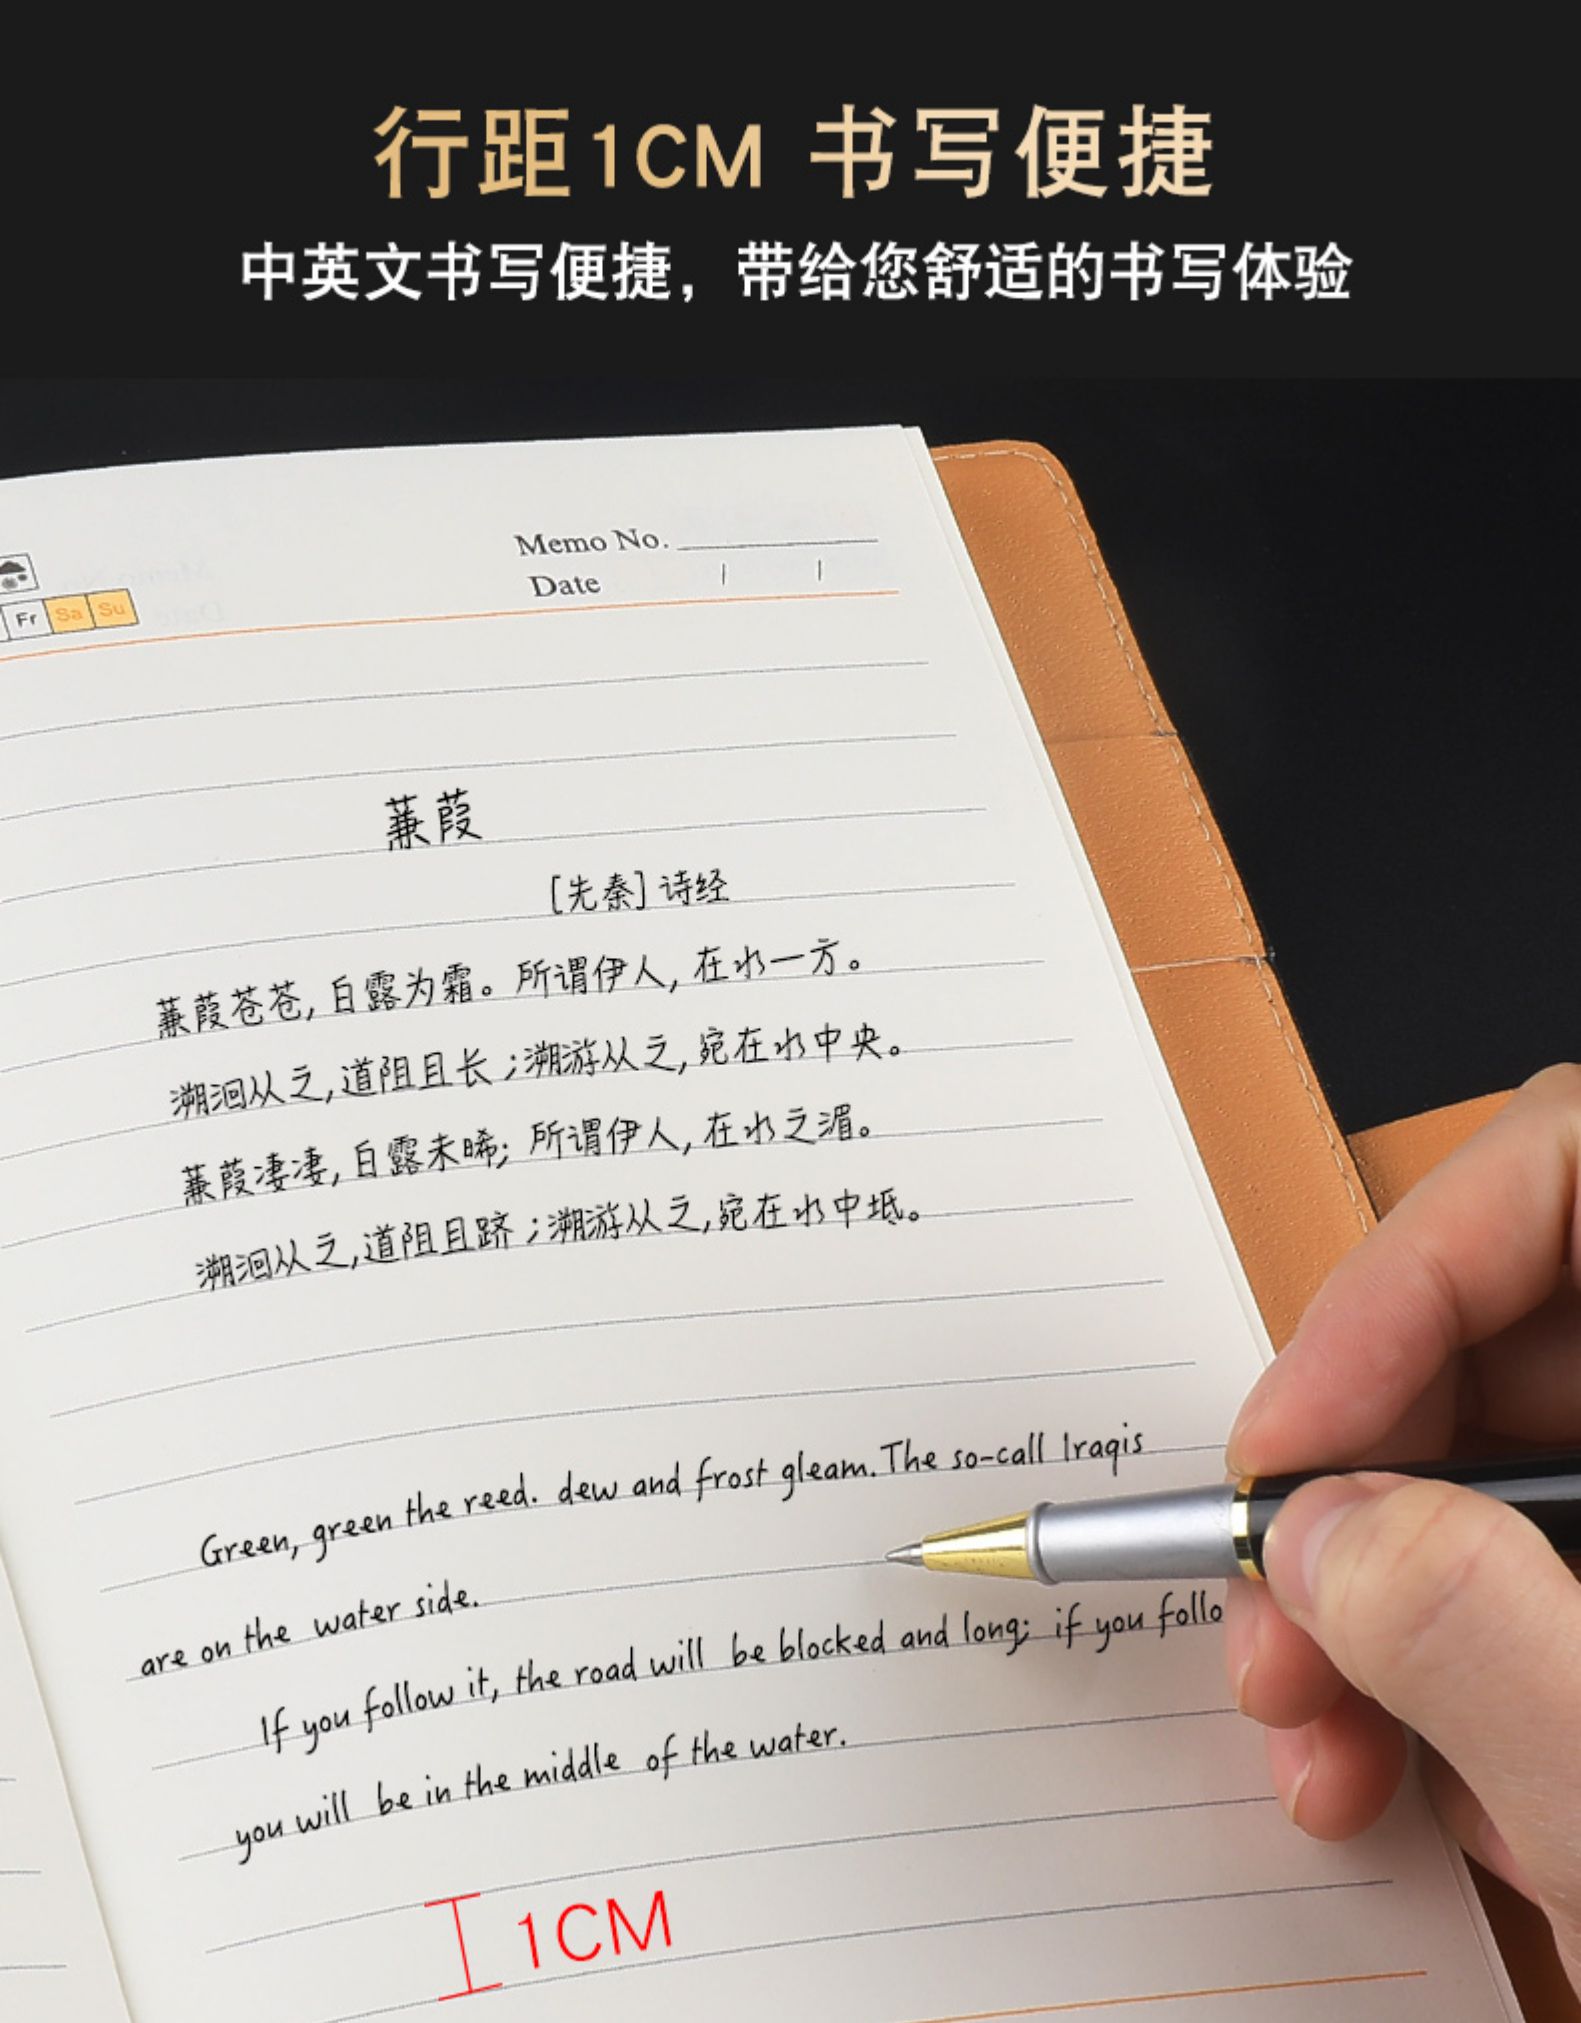 行距1CM 书写便捷
中英文书写便捷，带给您舒适的书写体验
Memo No.
Date
Fr Sa Su
蒹葭
[先秦] 诗经
蒹葭苍苍，白露为霜。所谓伊人，在水一方。
溯洄从之，道阻且长；溯游从之，宛在水中央。
蒹葭凄凄，白露未晞；所谓伊人，在水之湄。
溯洄从之，道阻且跻；溯游从之，宛在水中坻。
Green, green the reed. dew and frost gleam. The so-call Iraqis
are on the water side.
If you follow it, the road will be blocked and long; if you follo
you will be in the middle of the water.
1CM